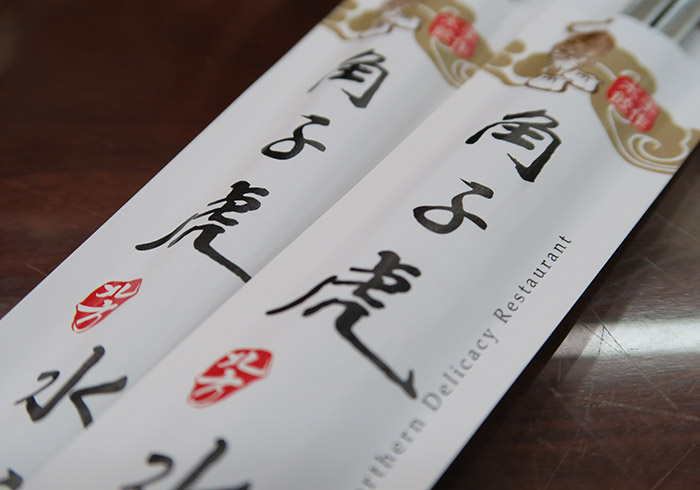 角子虎
北方
水
角子虎
北方
水
orthern Delicacy Restaurant